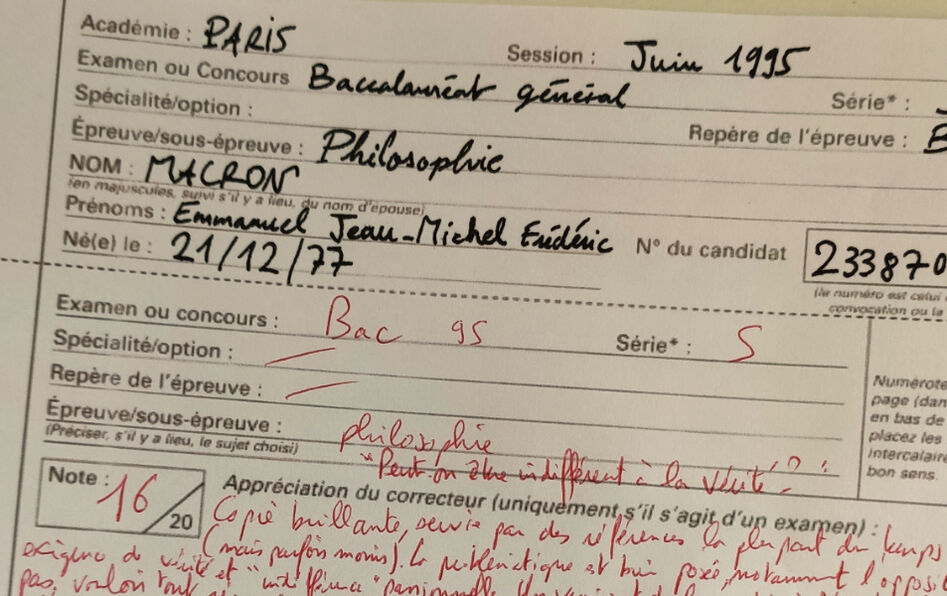 Académie : PARIS Session : Juin 1995
Examen ou Concours Baccalauréat général Série* :
Spécialité/option : Repère de l'épreuve :
Épreuve/sous-épreuve : Philosophie
NOM : MACRON
(en majuscules, suivi s'il y a lieu, du nom d'épouse)
Prénoms : Emmanuel Jean-Michel Frédéric N° du candidat 233870
Né(e) le : 21/12/77
(le numéro est celui
convocation ou la
Examen ou concours : Bac 95 Série* : S
Spécialité/option : /
Repère de l'épreuve : /
Épreuve/sous-épreuve : philosophie
(Préciser, s'il y a lieu, le sujet choisi) "Peut-on être indifférent à la vérité ?"
Numérote
page (dan
en bas de
placez les
intercalaire
bon sens.
Note : 16/20
Appréciation du correcteur (uniquement s'il s'agit d'un examen) :
Copie brillante, servie par des références la plupart du temps
(mais parfois moins). La problématique est bien posée, notamment
exigence de vérité et "indifférence"
pas, vouloir tout